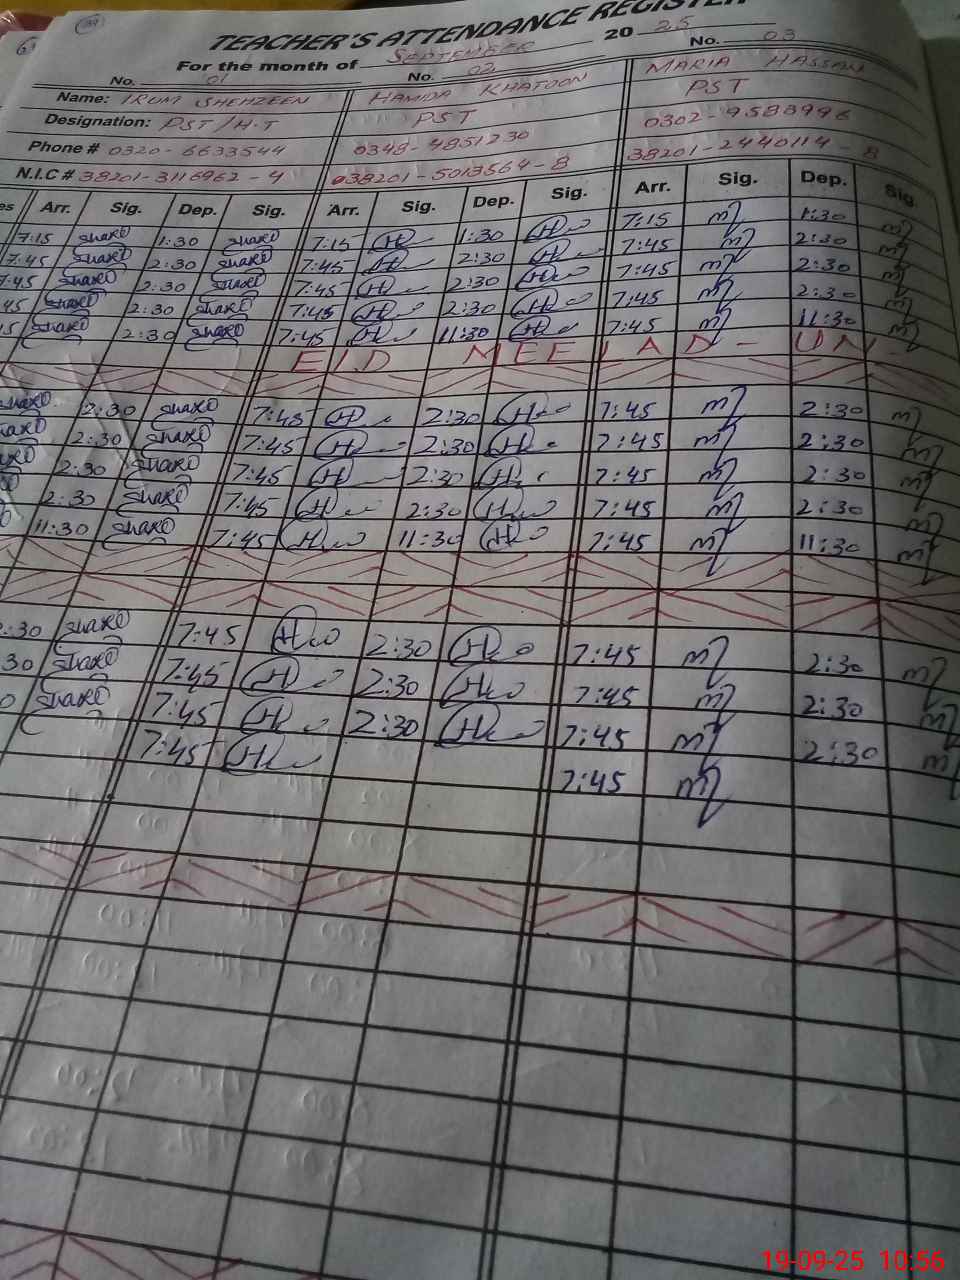 TEACHER'S ATTENDANCE REGISTER
For the month of SEPTEMBER 20 25
No. 01 No. 02 No. 03
Name: IRUM SHEHZEEN HAMIDA KHATOON MARIA HASSAN
Designation: PST/H.T PST PST
Phone # 0320-6633544 0348-4851230 0302-9583996
N.I.C # 38201-3116962-4 38201-5013564-8 38201-2440114-8
es Arr. Sig. Dep. Sig. Arr. Sig. Dep. Sig. Arr. Sig. Dep. Sig.
7:15 1:30 7:15 1:30 7:15 1:30
7:45 2:30 7:45 2:30 7:45 2:30
7:45 2:30 7:45 2:30 7:45 2:30
45 2:30 7:45 2:30 7:45 2:30
2:30 7:45 11:30 7:45 11:30
EID MEELAD-UN-
2:30 7:45 2:30 7:45 2:30
2:30 7:45 2:30 7:45 2:30
2:30 7:45 2:30 7:45 2:30
2:30 7:45 2:30 7:45 2:30
11:30 7:45 11:30 7:45 11:30
2:30 7:45 2:30 7:45 2:30
30 7:45 2:30 7:45 2:30
0 7:45 2:30 7:45 2:30
7:45 7:45
19-09-25 10:56